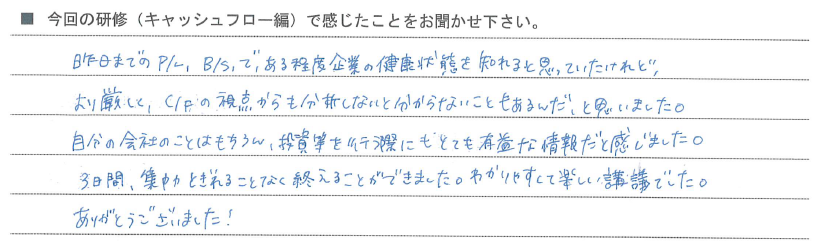 ■ 今回の研修（キャッシュフロー編）で感じたことをお聞かせ下さい。
昨日までのP/L，B/S，で，ある程度企業の健康状態を知れると思っていたけれど，
より厳しく，C/Fの視点からも分析しないと分からないこともあるんだ，と思いました。
自分の会社のことはもちろん，投資等を行う際にもとても有益な情報だと感じました。
3日間、集中力とぎれることなく終えることができました。わかりやすくて楽しい講議でした。
ありがとうございました！